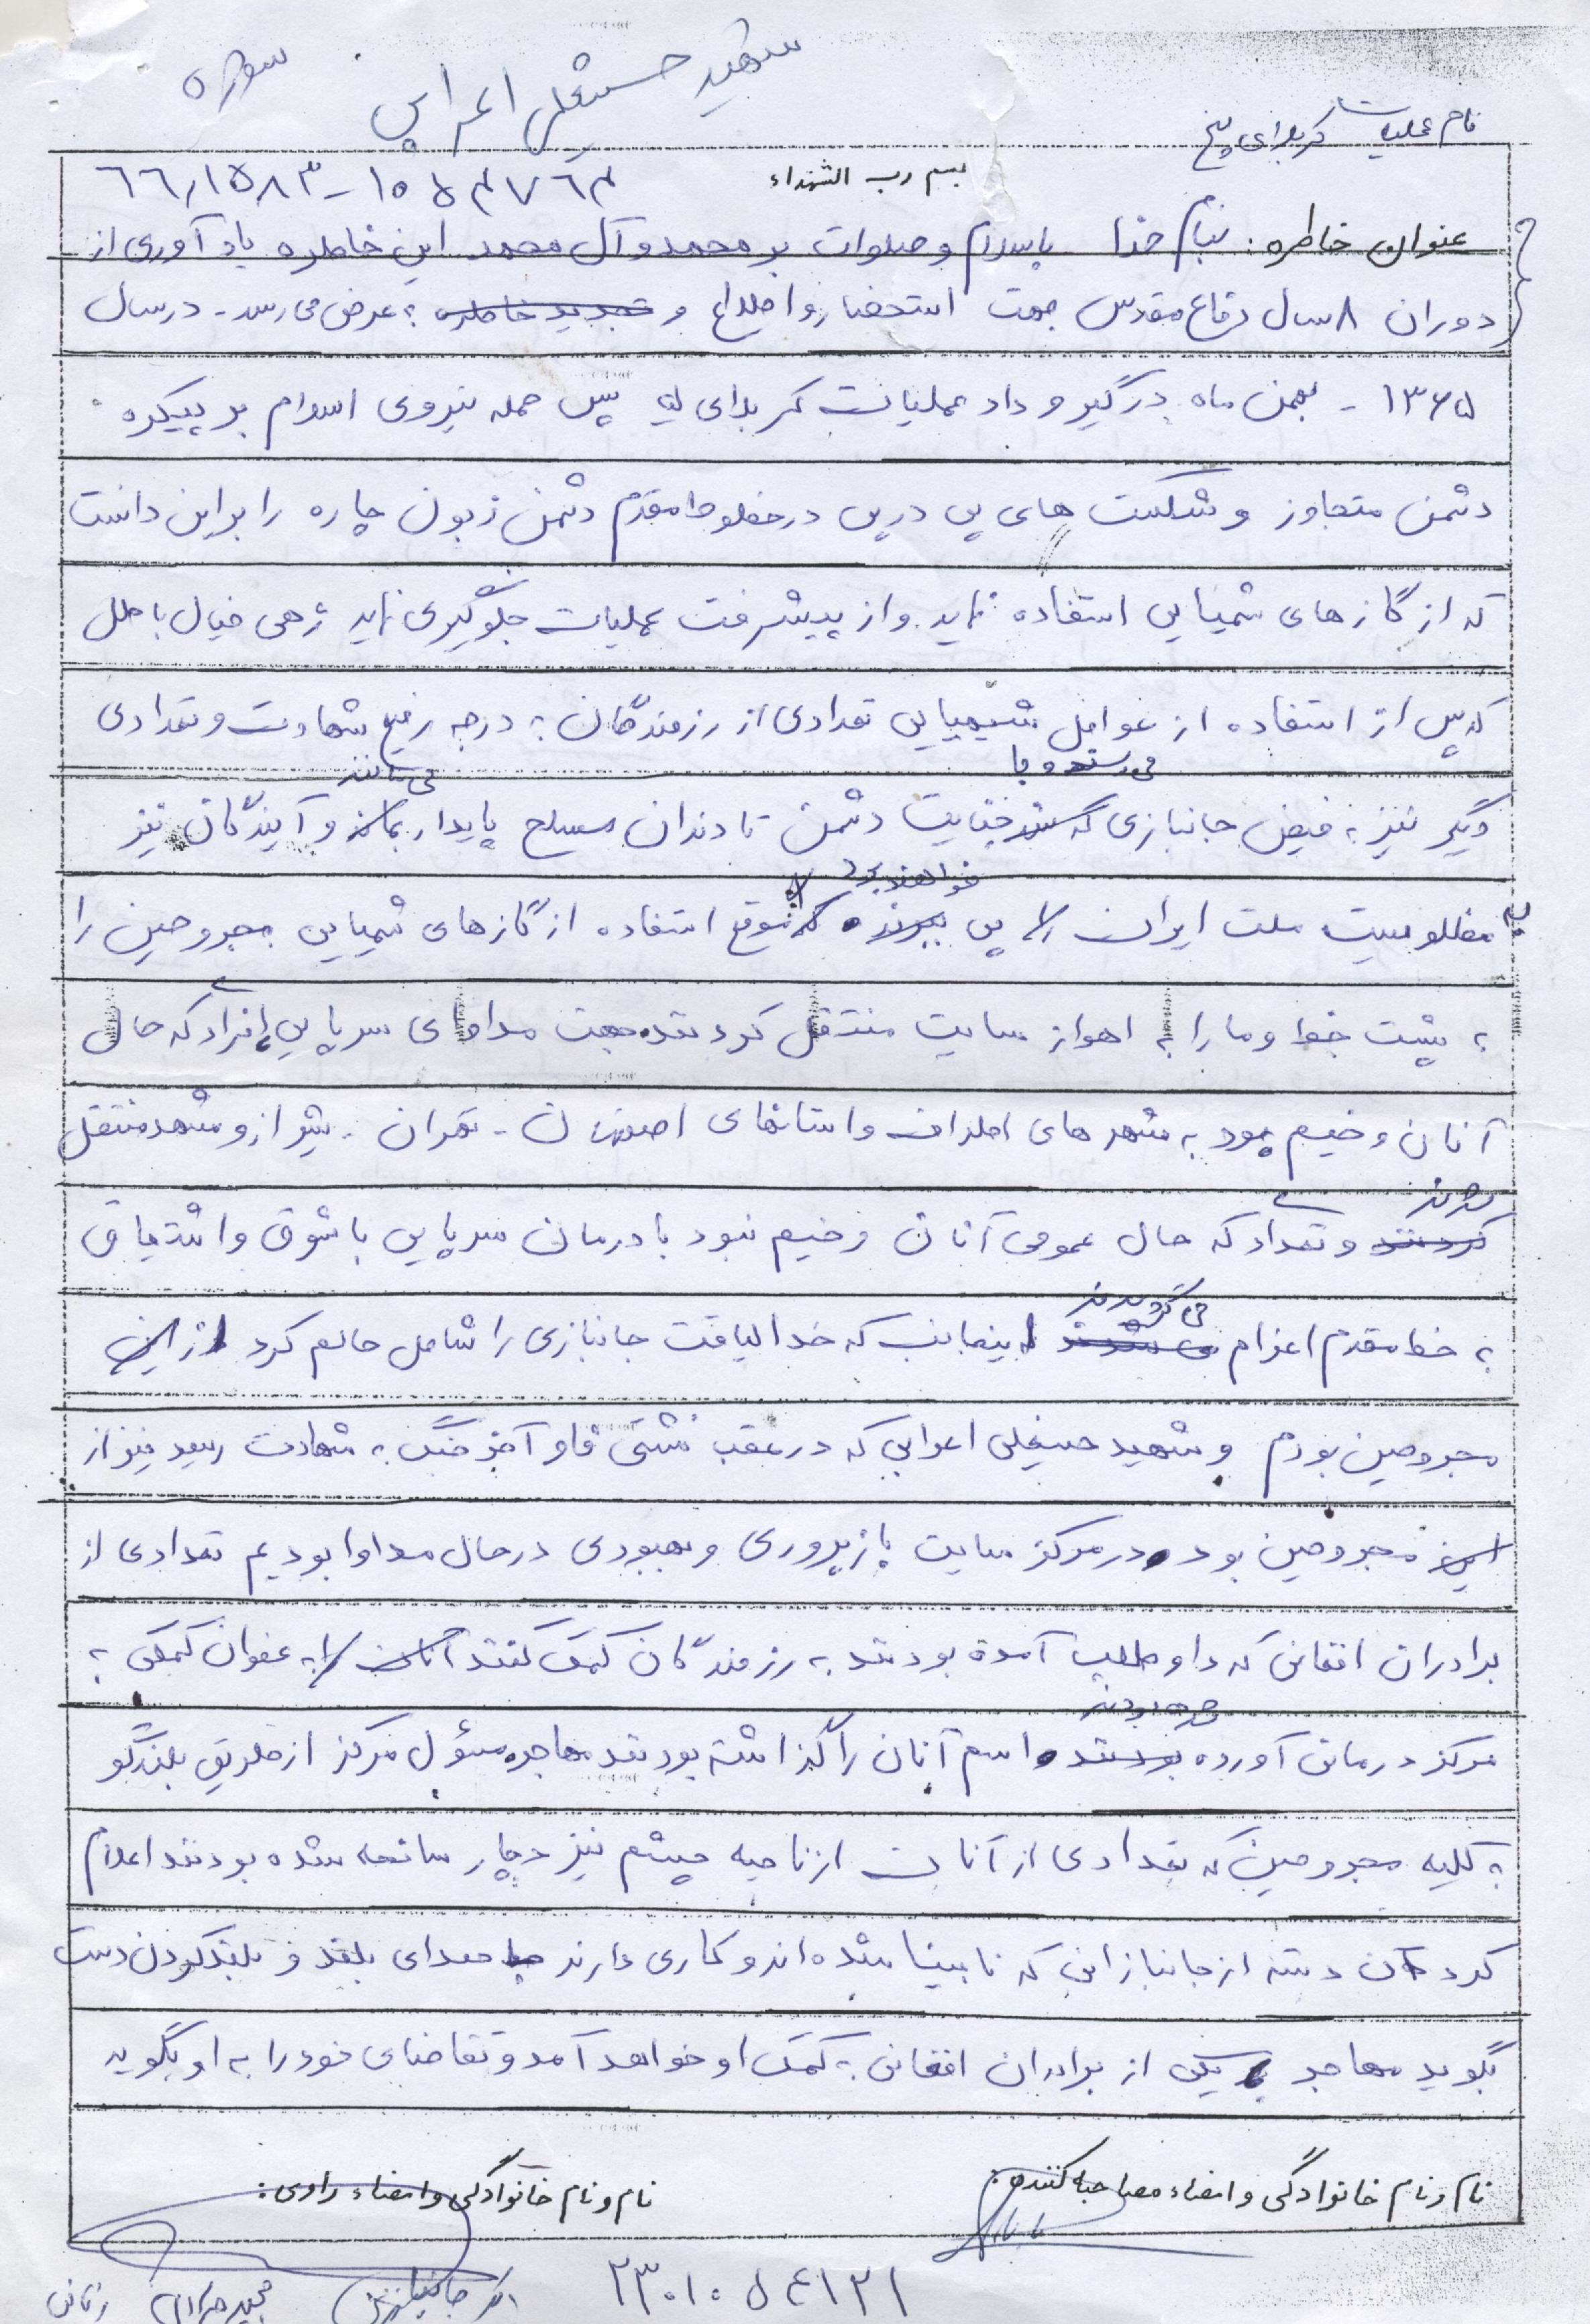 سوژه
شهید حسینعلی اعرابی
نام عملیات کربلای پنج
بسم رب الشهداء
عنوان خاطره: بنام خدا باسلام و صلوات بر محمد و آل محمد این خاطره یاد آوری از
دوران ۸ سال دفاع مقدس جهت استحضار و اطلاع و تجدید خاطره به عرض می رسد - در سال
۱۳۶۵ - بهمن ماه در گیر و داد عملیات کربلای پس حمله نیروی اسلام بر پیکره
دشمن متجاوز و شکست های پی در پی در خطوط مقدم دشمن زبون چاره را بر این دانست
که از گازهای شمیایی استفاده نماید و از پیشرفت عملیات جلوگیری نماید زهی خیال باطل
که پس از استفاده از عوامل شیمیایی تعدادی از رزمندگان به درجه رفیع شهادت و تعدادی
می رسند و با می مانند
دیگر نیز به فیض جانبازی که سند جنایت دشمن تا دندان مسلح پایدار بماند و آیندگان نیز
خواهند برد
به مظلومیت ملت ایران را پی ببرند که موقع استفاده از گازهای شیمیایی مجروحین را
به پشت خط و ما را به اهواز سایت منتقل کردند جهت مداوای سرپایی افراد که حال
آنان وخیم بود به شهرهای اطراف و استانهای اصفهان - تهران - شیراز و مشهد منتقل
شدند
کردند و تعداد که حال عمومی آنان وخیم نبود با درمان سرپایی با شوق و اشتیاق
می گردیدند
به خط مقدم اعزام می شدند اینجانب که خدا لیاقت جانبازی را شامل حالم کرد از این
مجروحین بودم و شهید حسینعلی اعرابی که در عقب نشینی فاو آخر جنگ به شهادت رسید نیز از
این مجروحین بود در مرکز سایت بازپروری و بهبودی در حال مداوا بودیم تعدادی از
برادران افغانی که داوطلب آمده بودند به رزمندگان کمک کنند آنان را به عنوان کمکی به
مرکز درمانی آورده بودند و اسم آنان را گذاشته بودند مهاجر مسئول مرکز از طریق بلندگو
به کلیه مجروحین که تعدادی از آنان از ناحیه چشم نیز دچار سانحه شده بودند اعلام
کرد آن دسته از جانبازانی که نابینا شده اند و کاری دارند با صدای بلند و بلند کردن دست
بگوید مهاجر یکی از برادران افغانی به کمک او خواهد آمد و تقاضای خود را به او بگوید
نام و نام خانوادگی و امضاء مصاحبه کننده:
نام و نام خانوادگی و امضاء راوی:
۲۳۰۱۰۵۴۱۲۱